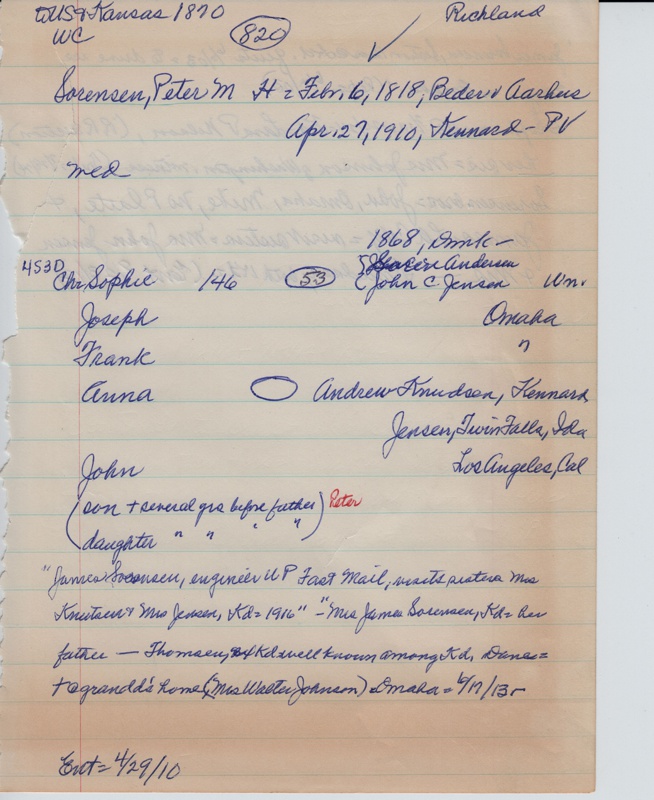 US & Kansas 1870 Richland
WC 820 ✓
Sorensen, Peter M H = Feb. 6, 1818, Beder v Aarhus
Apr. 27, 1910, Kennard - PV
med
1868, Dmk -
453D Andersen
Chr. Sophie 146 53 John C. Jensen Wn.
Joseph Omaha
Frank "
Anna Andrew Knudsen, Kennard
Jensen, Twin Falls, Ida
John Los Angeles, Cal
(son + several yrs before father) Peter
daughter " " " "
"James Sorensen, engineer UP Fast Mail, visits sisters Mrs
Knutsen & Mrs Jensen, Kd = 1916" - "Mrs James Sorensen, Kd = her
father — Thomsen, Kd well known among Kd. Danes =
+ a grandd's home (Mrs Walter Johnson) Omaha = 6/17/15-
Ent = 4/29/10